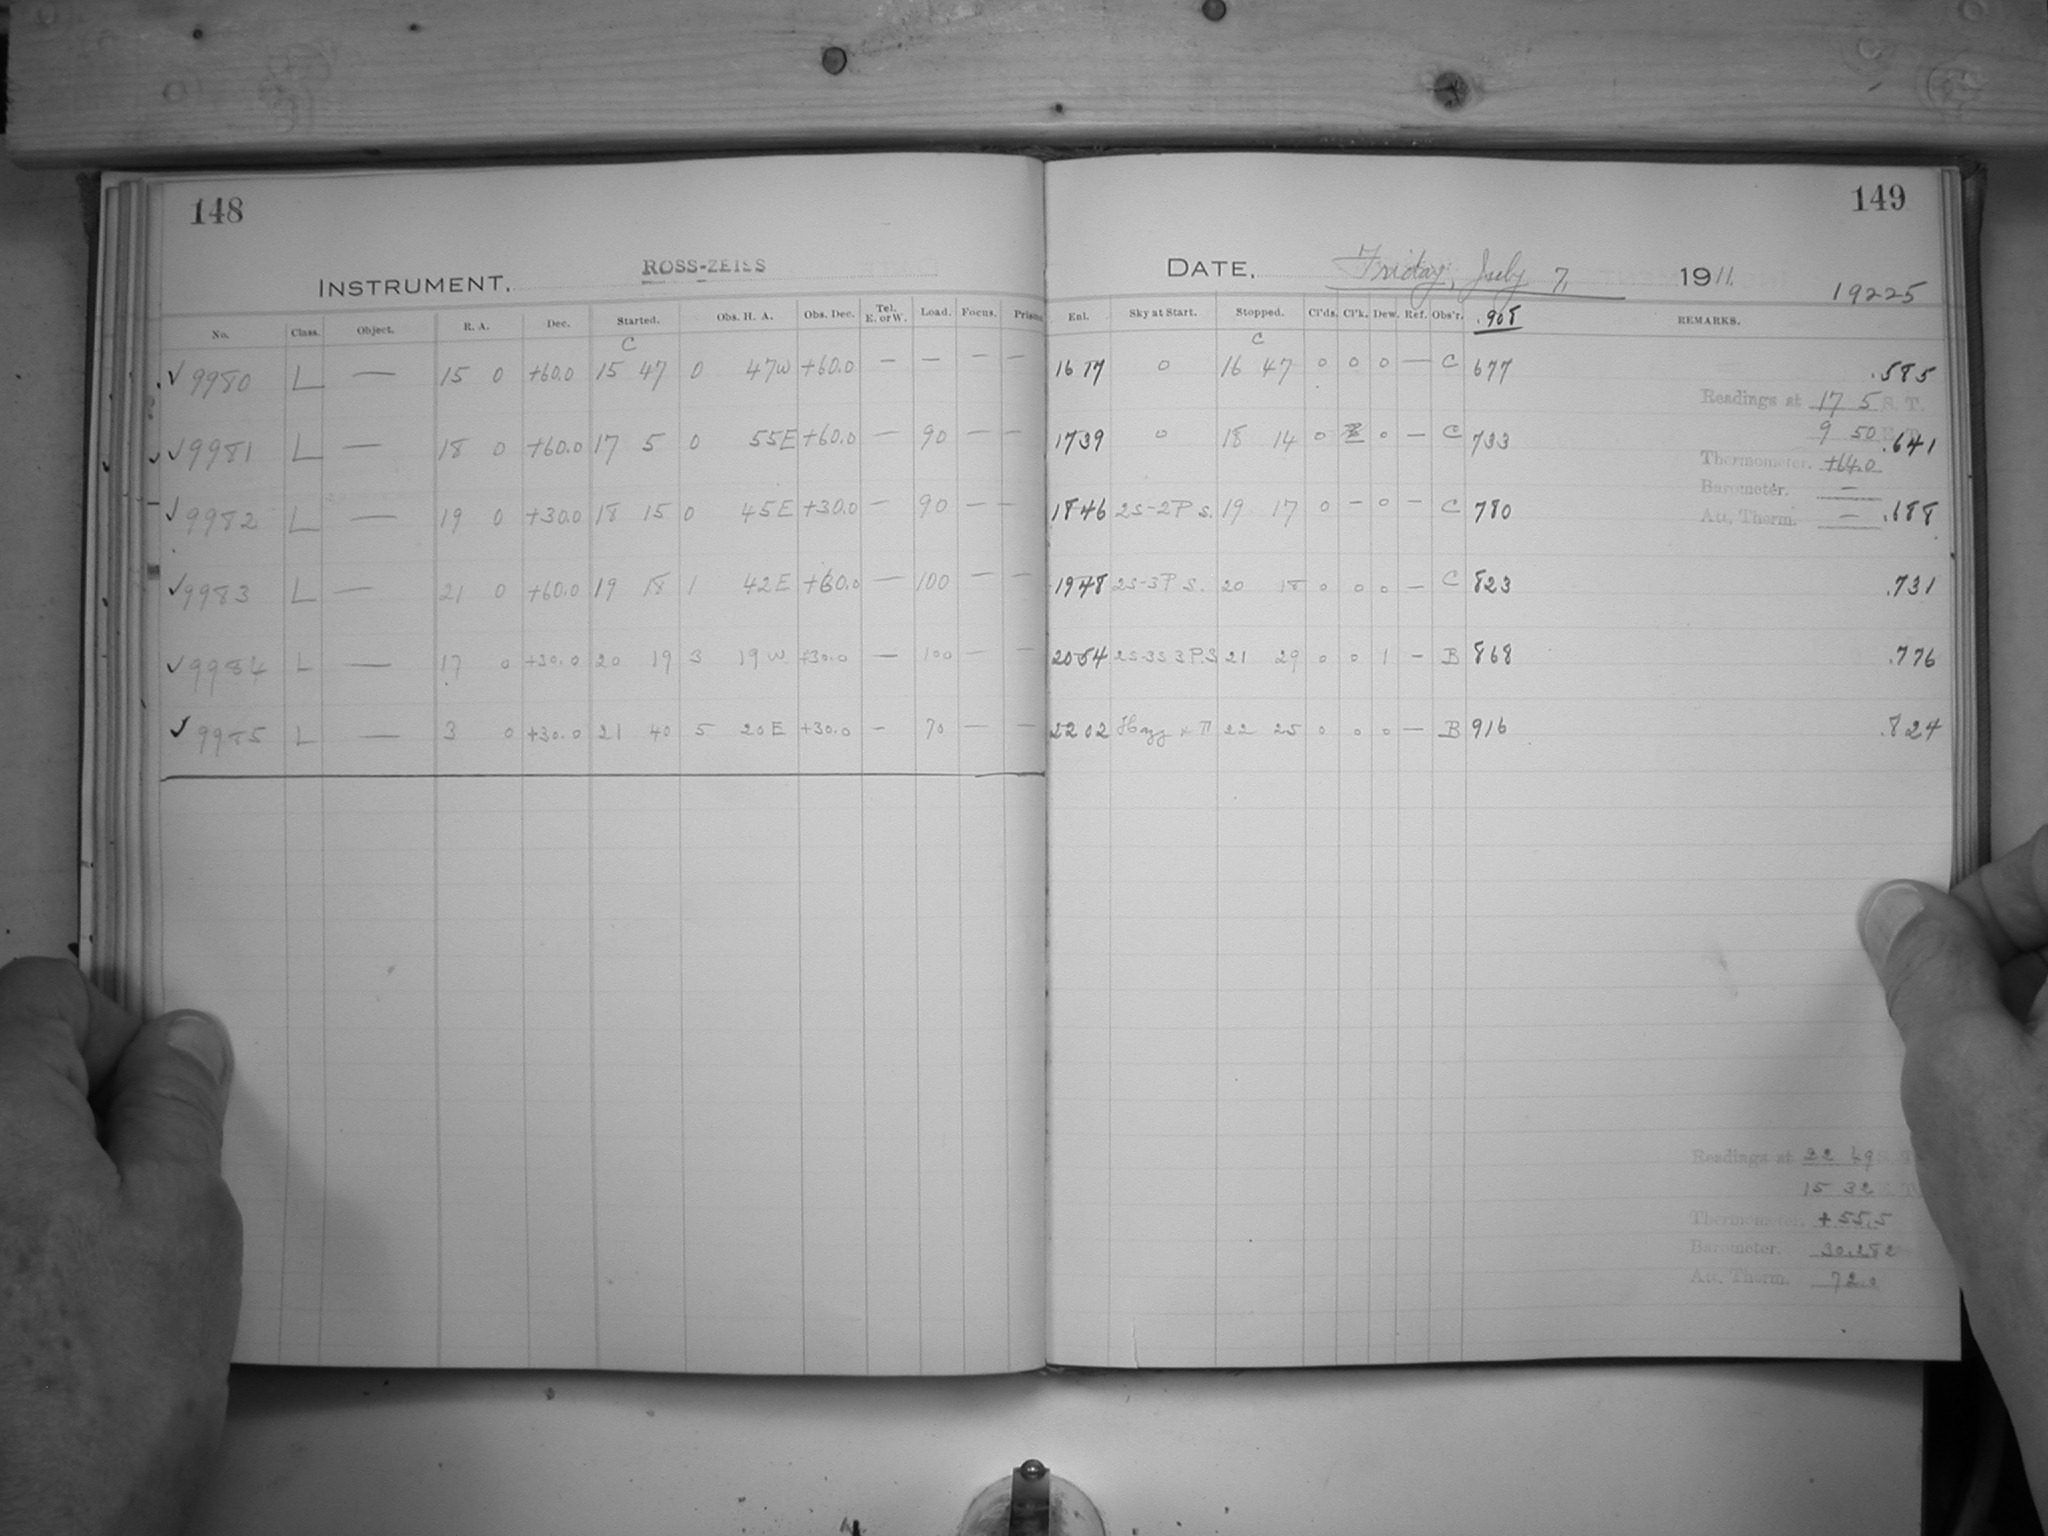 148
INSTRUMENT. ROSS-ZEISS
No. Class. Object. R. A. Dec. Started. Obs. H. A. Obs. Dec. Tel. E. or W. Load. Focus. Prisms.
C
✓ 9980 L — 15 0 +60.0 15 47 0 47W +60.0 — — — —
✓ 9981 L — 18 0 +60.0 17 5 0 55E +60.0 — 90 — —
✓ 9982 L — 19 0 +30.0 18 15 0 45E +30.0 — 90 — —
✓ 9983 L — 21 0 +60.0 19 18 1 42E +60.0 — 100 — —
✓ 9984 L — 17 0 +30.0 20 19 3 19W +30.0 — 100 — —
✓ 9985 L — 3 0 +30.0 21 40 5 20E +30.0 — 70 — —
149
DATE, Friday, July 7, 1911.
19225
Enl. Sky at Start. Stopped. Cl'ds. Cl'k. Dew. Ref. Obs'r. .908 REMARKS.
C
16 17 0 16 47 0 0 0 — C 677 .585
Readings at 17 5 S. T.
1739 0 18 14 0 0 — C 733 9 50 E. T. .641
Thermometer. +64.0
Barometer. —
1846 2S-2P S. 19 17 0 — 0 — C 780 Att. Therm. — .688
1948 2S-3P S. 20 18 0 0 0 — C 823 .731
2054 2S-3S 3P.S 21 29 0 0 1 — B 868 .776
2202 Hazy 22 25 0 0 0 — B 916 .824
Readings at 22 49 S. T.
15 32 E. T.
Thermometer. +55.5
Barometer. 30.282
Att. Therm. 72.0